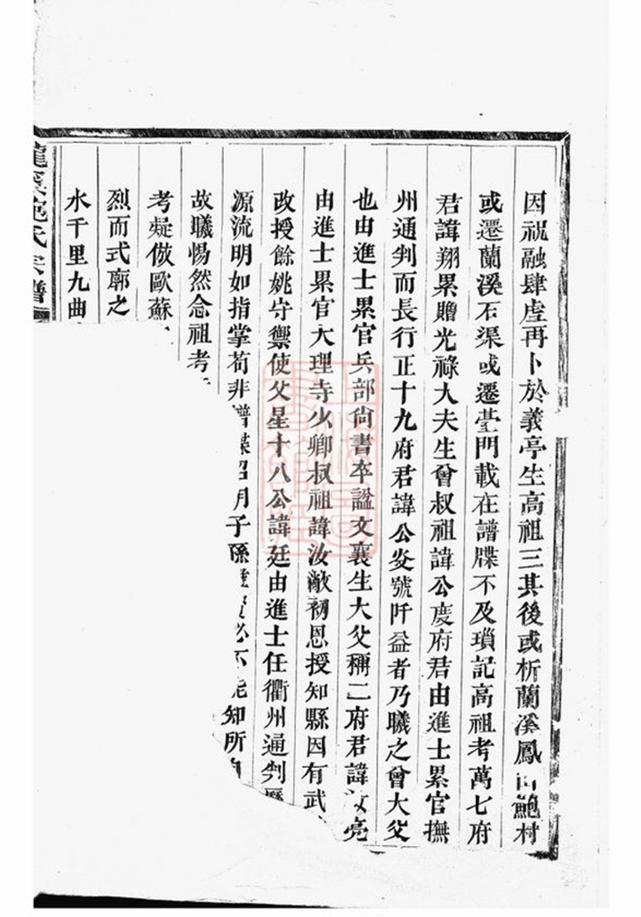 因祝融肆虐再卜於義亭生高祖三其後或析蘭溪鳳山鮑村
或遷蘭溪石渠或遷臺門載在譜牒不及瑣記高祖考萬七府
君諱翔累贈光祿大夫生曾叔祖諱公度府君由進士累官撫
州通判而長行正十九府君諱公炎號阡益者乃曦之曾大父
也由進士累官兵部尙書卒謚文襄生大父稱二府君諱汝亮
由進士累官大理寺少卿叔祖諱汝敵初恩授知縣因有武
改授餘姚守禦使父星十八公諱廷由進士任衢州通判
源流明如指掌荀非譜牒昭明子孫 必不能知所
故曦惕然念祖考
考疑倣歐蘇
烈而式廓之
水千里九曲
龍溪鮑氏宗譜